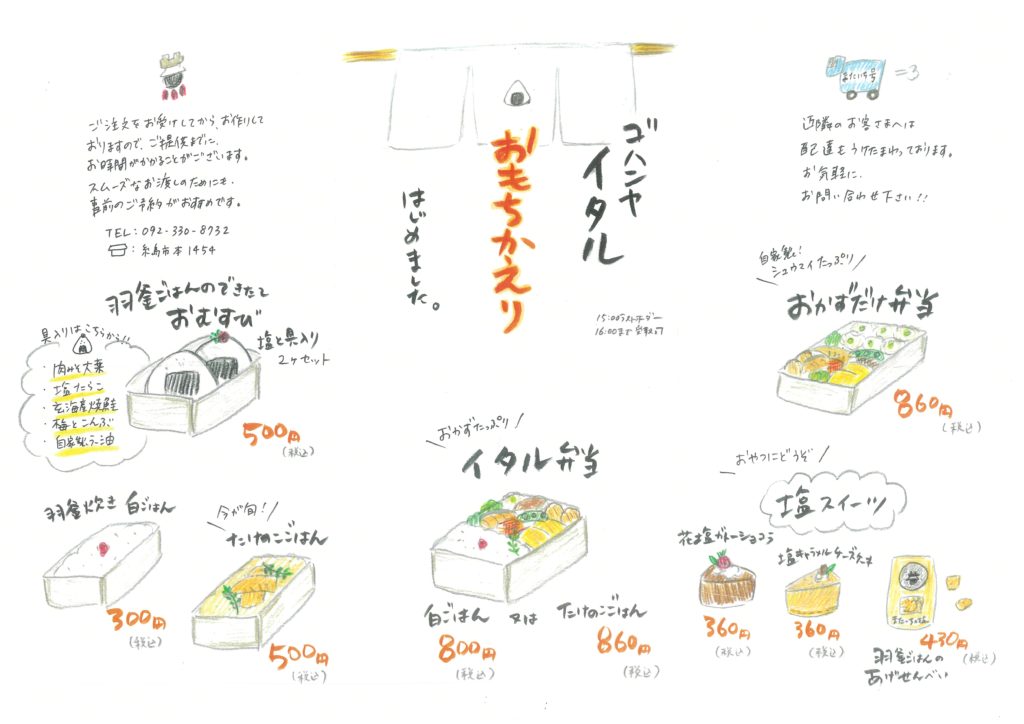 ゴハンヤ
イタル
おもちかえり
はじめました。
15:00ラストオーダー
16:00まで受取り
ご注文をお受けしてから、お作りして
おりますので、ご提供までに、
お時間がかかることがございます。
スムーズなお渡しのためにも、
事前のご予約がおすすめです。
TEL:092-330-8732
:糸島市本1454
またいち号
近隣のお客さまへは
配達もうけたまわっております。
お気軽に、
お問い合わせ下さい!!
羽釜ごはんのできたて
おむすび
塩と具入り
2ヶセット
500円
(税込)
具入りはこちらから!!
・肉みそ大葉
・塩たらこ
・玄海産焼鮭
・梅とこんぶ
・自家製ラー油
羽釜炊き 白ごはん
300円
(税込)
今が旬!
たけのこごはん
500円
(税込)
おかずたっぷり
イタル弁当
白ごはん 又は たけのこごはん
800円 860円
(税込) (税込)
自家製!
シュウマイたっぷり
おかずだけ弁当
860円
(税込)
おやつにどうぞ
塩スイーツ
花塩ガトーショコラ
360円
(税込)
塩キャラメルチーズケーキ
360円
(税込)
430円
(税込)
羽釜ごはんの
あげせんべい